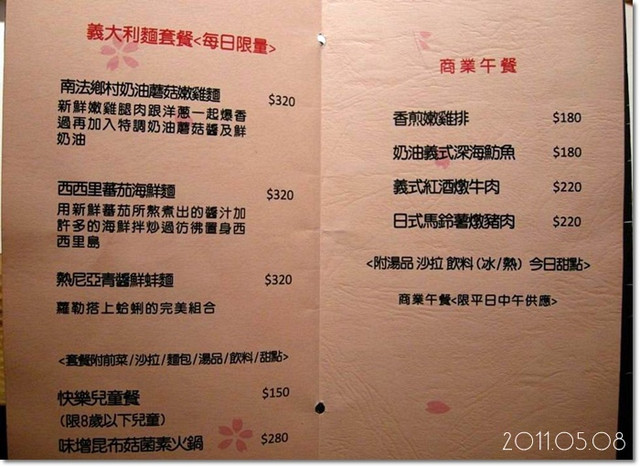 義大利麵套餐<每日限量>
南法鄉村奶油蘑菇嫩雞麵 $320
新鮮嫩雞腿肉跟洋蔥一起爆香
過再加入特調奶油蘑菇醬及鮮
奶油
西西里蕃茄海鮮麵 $320
用新鮮蕃茄所熬煮出的醬汁加
許多的海鮮拌炒過彷彿置身西
西里島
熱尼亞青醬鮮蚌麵 $320
蘿勒搭上蛤蜊的完美組合
<套餐附前菜/沙拉/麵包/湯品/飲料/甜點>
快樂兒童餐 $150
(限8歲以下兒童)
味增昆布菇菌素火鍋 $280
商業午餐
香煎嫩雞排 $180
奶油義式深海魴魚 $180
義式紅酒燉牛肉 $220
日式馬鈴薯燉豬肉 $220
<附湯品 沙拉 飲料(冰/熱) 今日甜點>
商業午餐<限平日中午供應>
2011.05.08